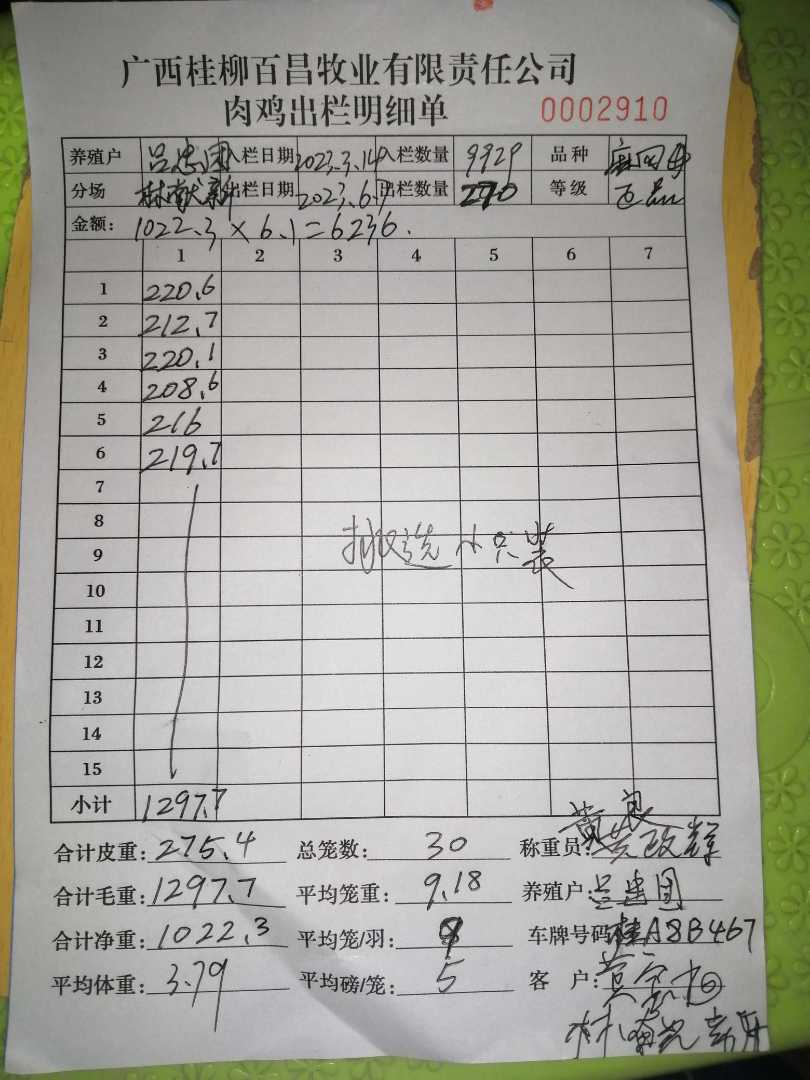 广西桂柳百昌牧业有限责任公司
肉鸡出栏明细单 0002910
养殖户 吕建团 入栏日期 2023.3.14 入栏数量 9929 品种
分场 林献新 出栏日期 2023.6. 出栏数量 270 等级
金额: 1022.3×6.1=6236.
1 2 3 4 5 6 7
1 220.6
2 212.7
3 220.1
4 208.6
5 216
6 219.7
7
8
9 挑选小只装
10
11
12
13
14
15
小计 1297.7
合计皮重: 275.4 总笼数: 30 称重员: 黄政辉
合计毛重: 1297.7 平均笼重: 9.18 养殖户: 吕建团
合计净重: 1022.3 平均笼/羽: 9 车牌号码 桂A8B467
平均体重: 3.79 平均磅/笼: 5 客户: 黄
林